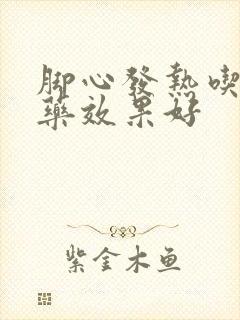 脚心發熱喫
藥效果好
紫金木鱼